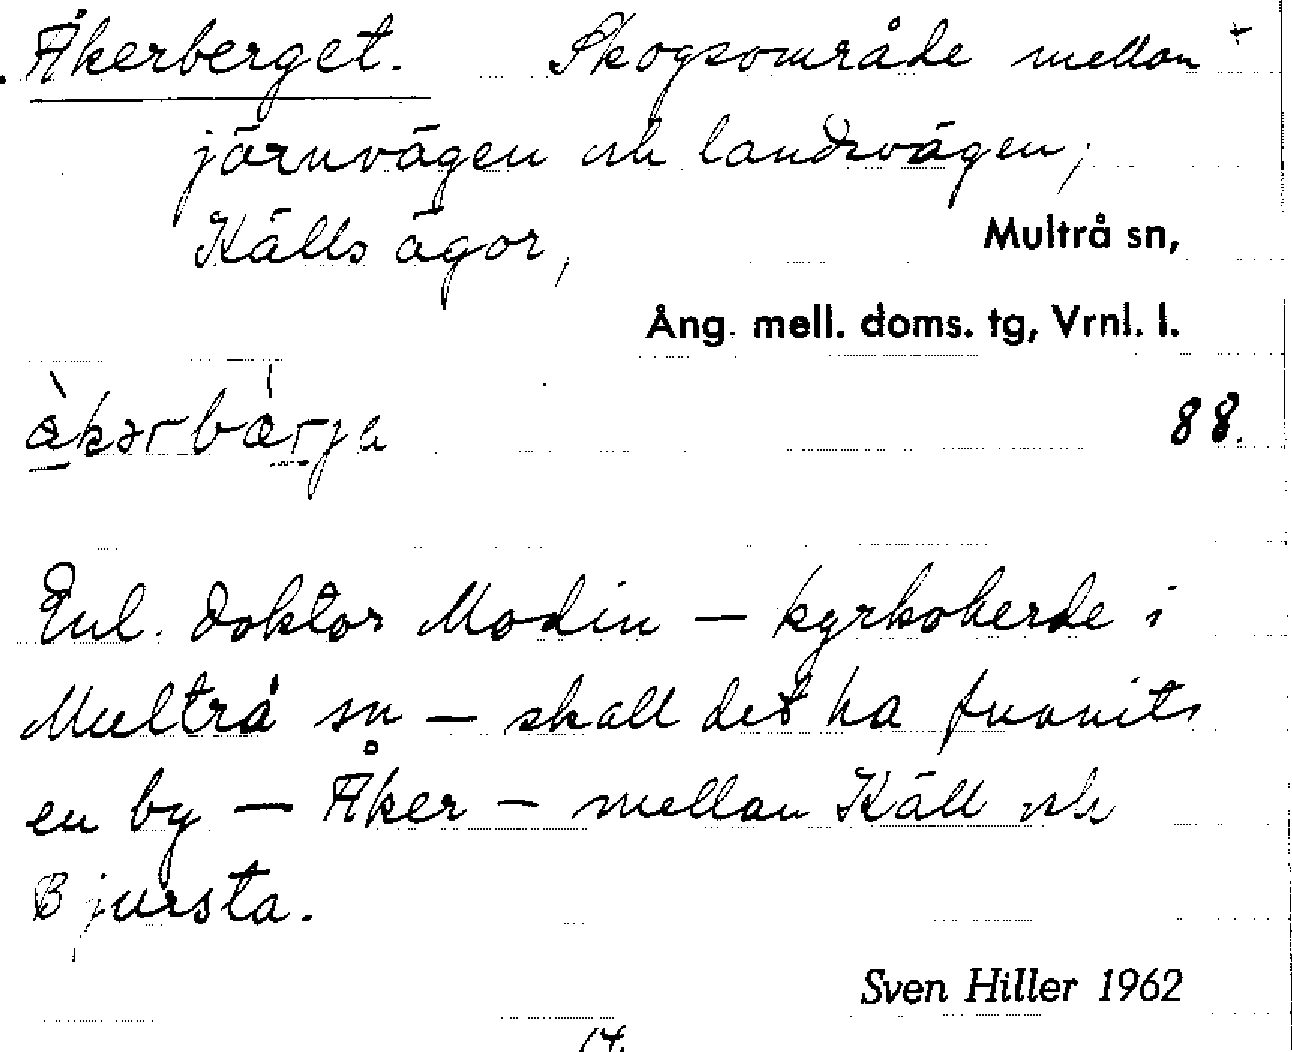 Åkerberget. Skogsområde mellan +
järnvägen och landsvägen,
Källs ägor, Multrå sn,
Ång. mell. doms. tg, Vrnl. l.
88.
Enl. doktor Modin — kyrkoherde i
Multrå sn — skall det ha funnits
en by — Åker — mellan Käll och
Bjursta.
Sven Hiller 1962
14.